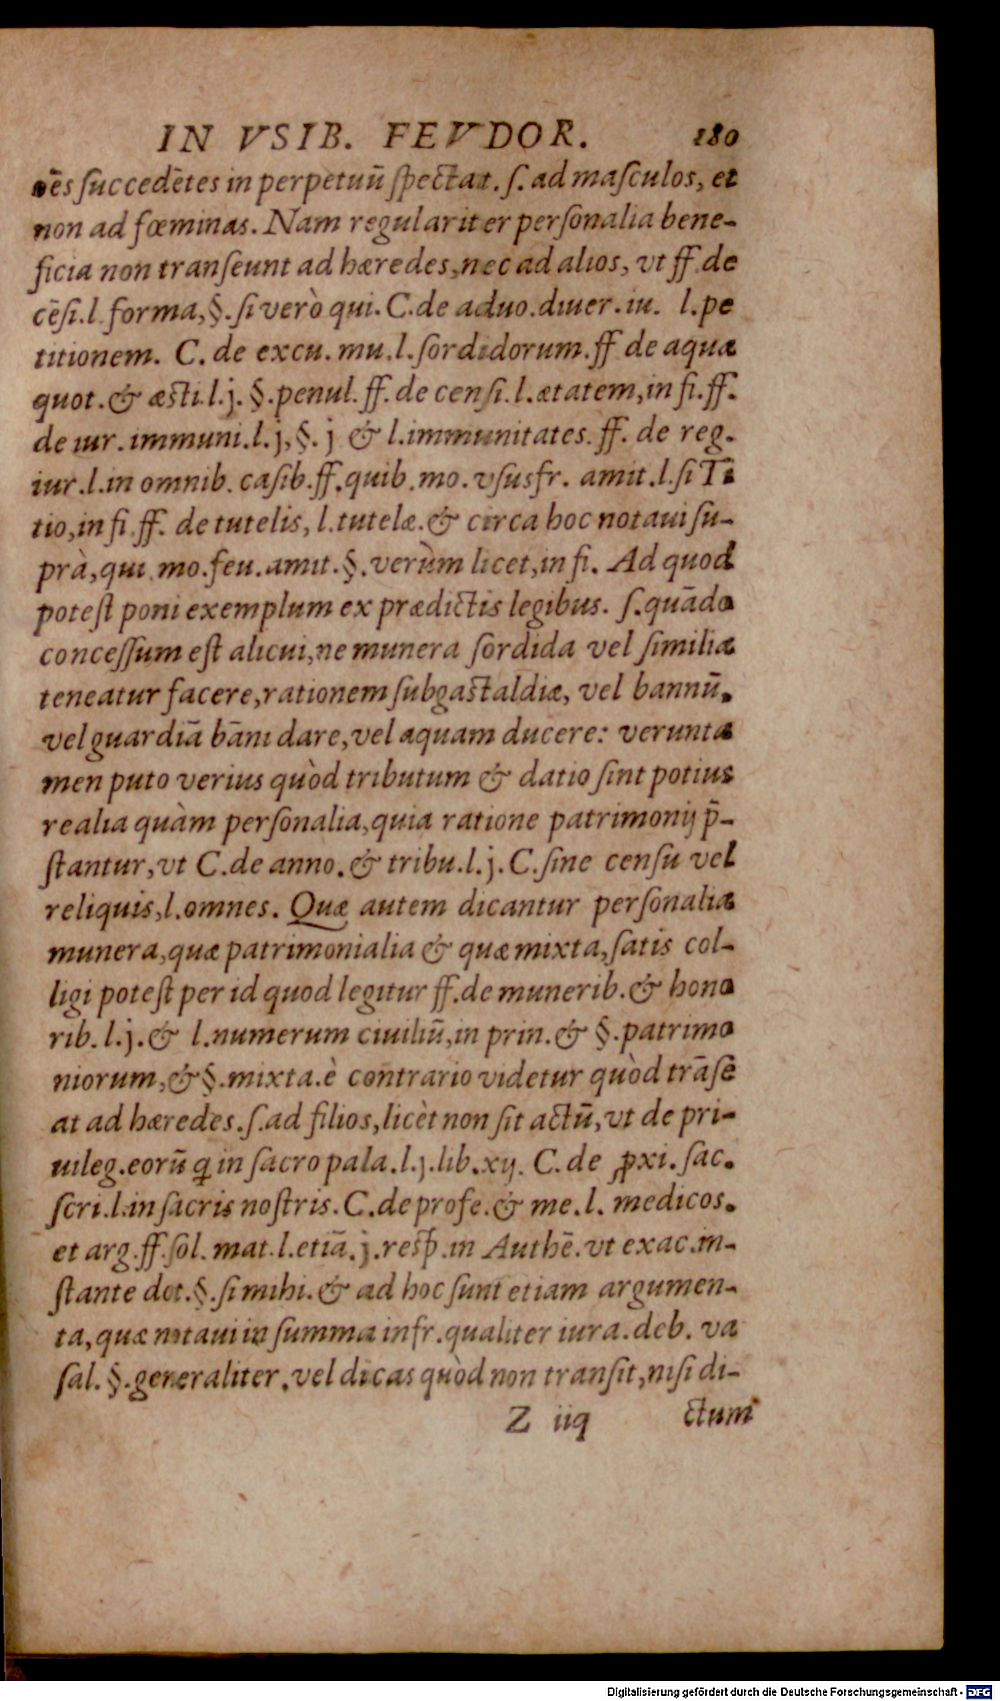 IN VSIB. FEVDOR. 180
oēs ſuccedētes in perpetuū ſpectat. ſ. ad maſculos, et
non ad fœminas. Nam regulariter perſonalia bene-
ficia non tranſeunt ad hæredes, nec ad alios, vt ff. de
cēſi. l. forma, §. ſi verò qui. C. de aduo. diuer. iu. l. pe
titionem. C. de excu. mu. l. ſordidorum. ff. de aqua
quot. & æsti. l. j. §. penul. ff. de cenſi. l. ætatem, in fi. ff.
de iur. immuni. l. j, §. j & l. immunitates. ff. de reg.
iur. l. in omnib. caſib. ff. quib. mo. vſusfr. amit. l. ſi Ti
tio, in fi. ff. de tutelis, l. tutelæ. & circa hoc notaui ſu-
prà, qui. mo. feu. amit. §. verùm licet, in fi. Ad quod
poteſt poni exemplum ex prædictis legibus. ſ. quādo
conceſſum eſt alicui, ne munera ſordida vel ſimilia
teneatur facere, rationem ſubgastaldiæ, vel bannū,
vel guardiā bāni dare, vel aquam ducere: verunta
men puto verius quòd tributum & datio ſint potius
realia quàm perſonalia, quia ratione patrimonij p̄-
ſtantur, vt C. de anno. & tribu. l. j. C. ſine cenſu vel
reliquis, l. omnes. Quæ autem dicantur perſonalia
munera, quæ patrimonialia & quæ mixta, ſatis col-
ligi poteſt per id quod legitur ff. de munerib. & hono
rib. l. j. & l. numerum ciuiliū, in prin. & §. patrimo
niorum, & §. mixta. è contrario videtur quòd trāſe
at ad hæredes. ſ. ad filios, licèt non ſit actū, vt de pri-
uileg. eorū q in ſacro pala. l. j. lib. xij. C. de ꝓxi. ſac.
ſcri. l. in ſacris noſtris. C. de profe. & me. l. medicos.
et arg. ff. ſol. mat. l. etiā. j. reſp̄. in Authē. vt exac. in-
ſtante dot. §. ſi mihi. & ad hoc ſunt etiam argumen-
ta, quæ notaui in ſumma infr. qualiter iura. deb. va
ſal. §. generaliter. vel dicas quòd non tranſit, niſi di-
Z iiij ctum
Digitalisierung gefördert durch die Deutsche Forschungsgemeinschaft - DFG